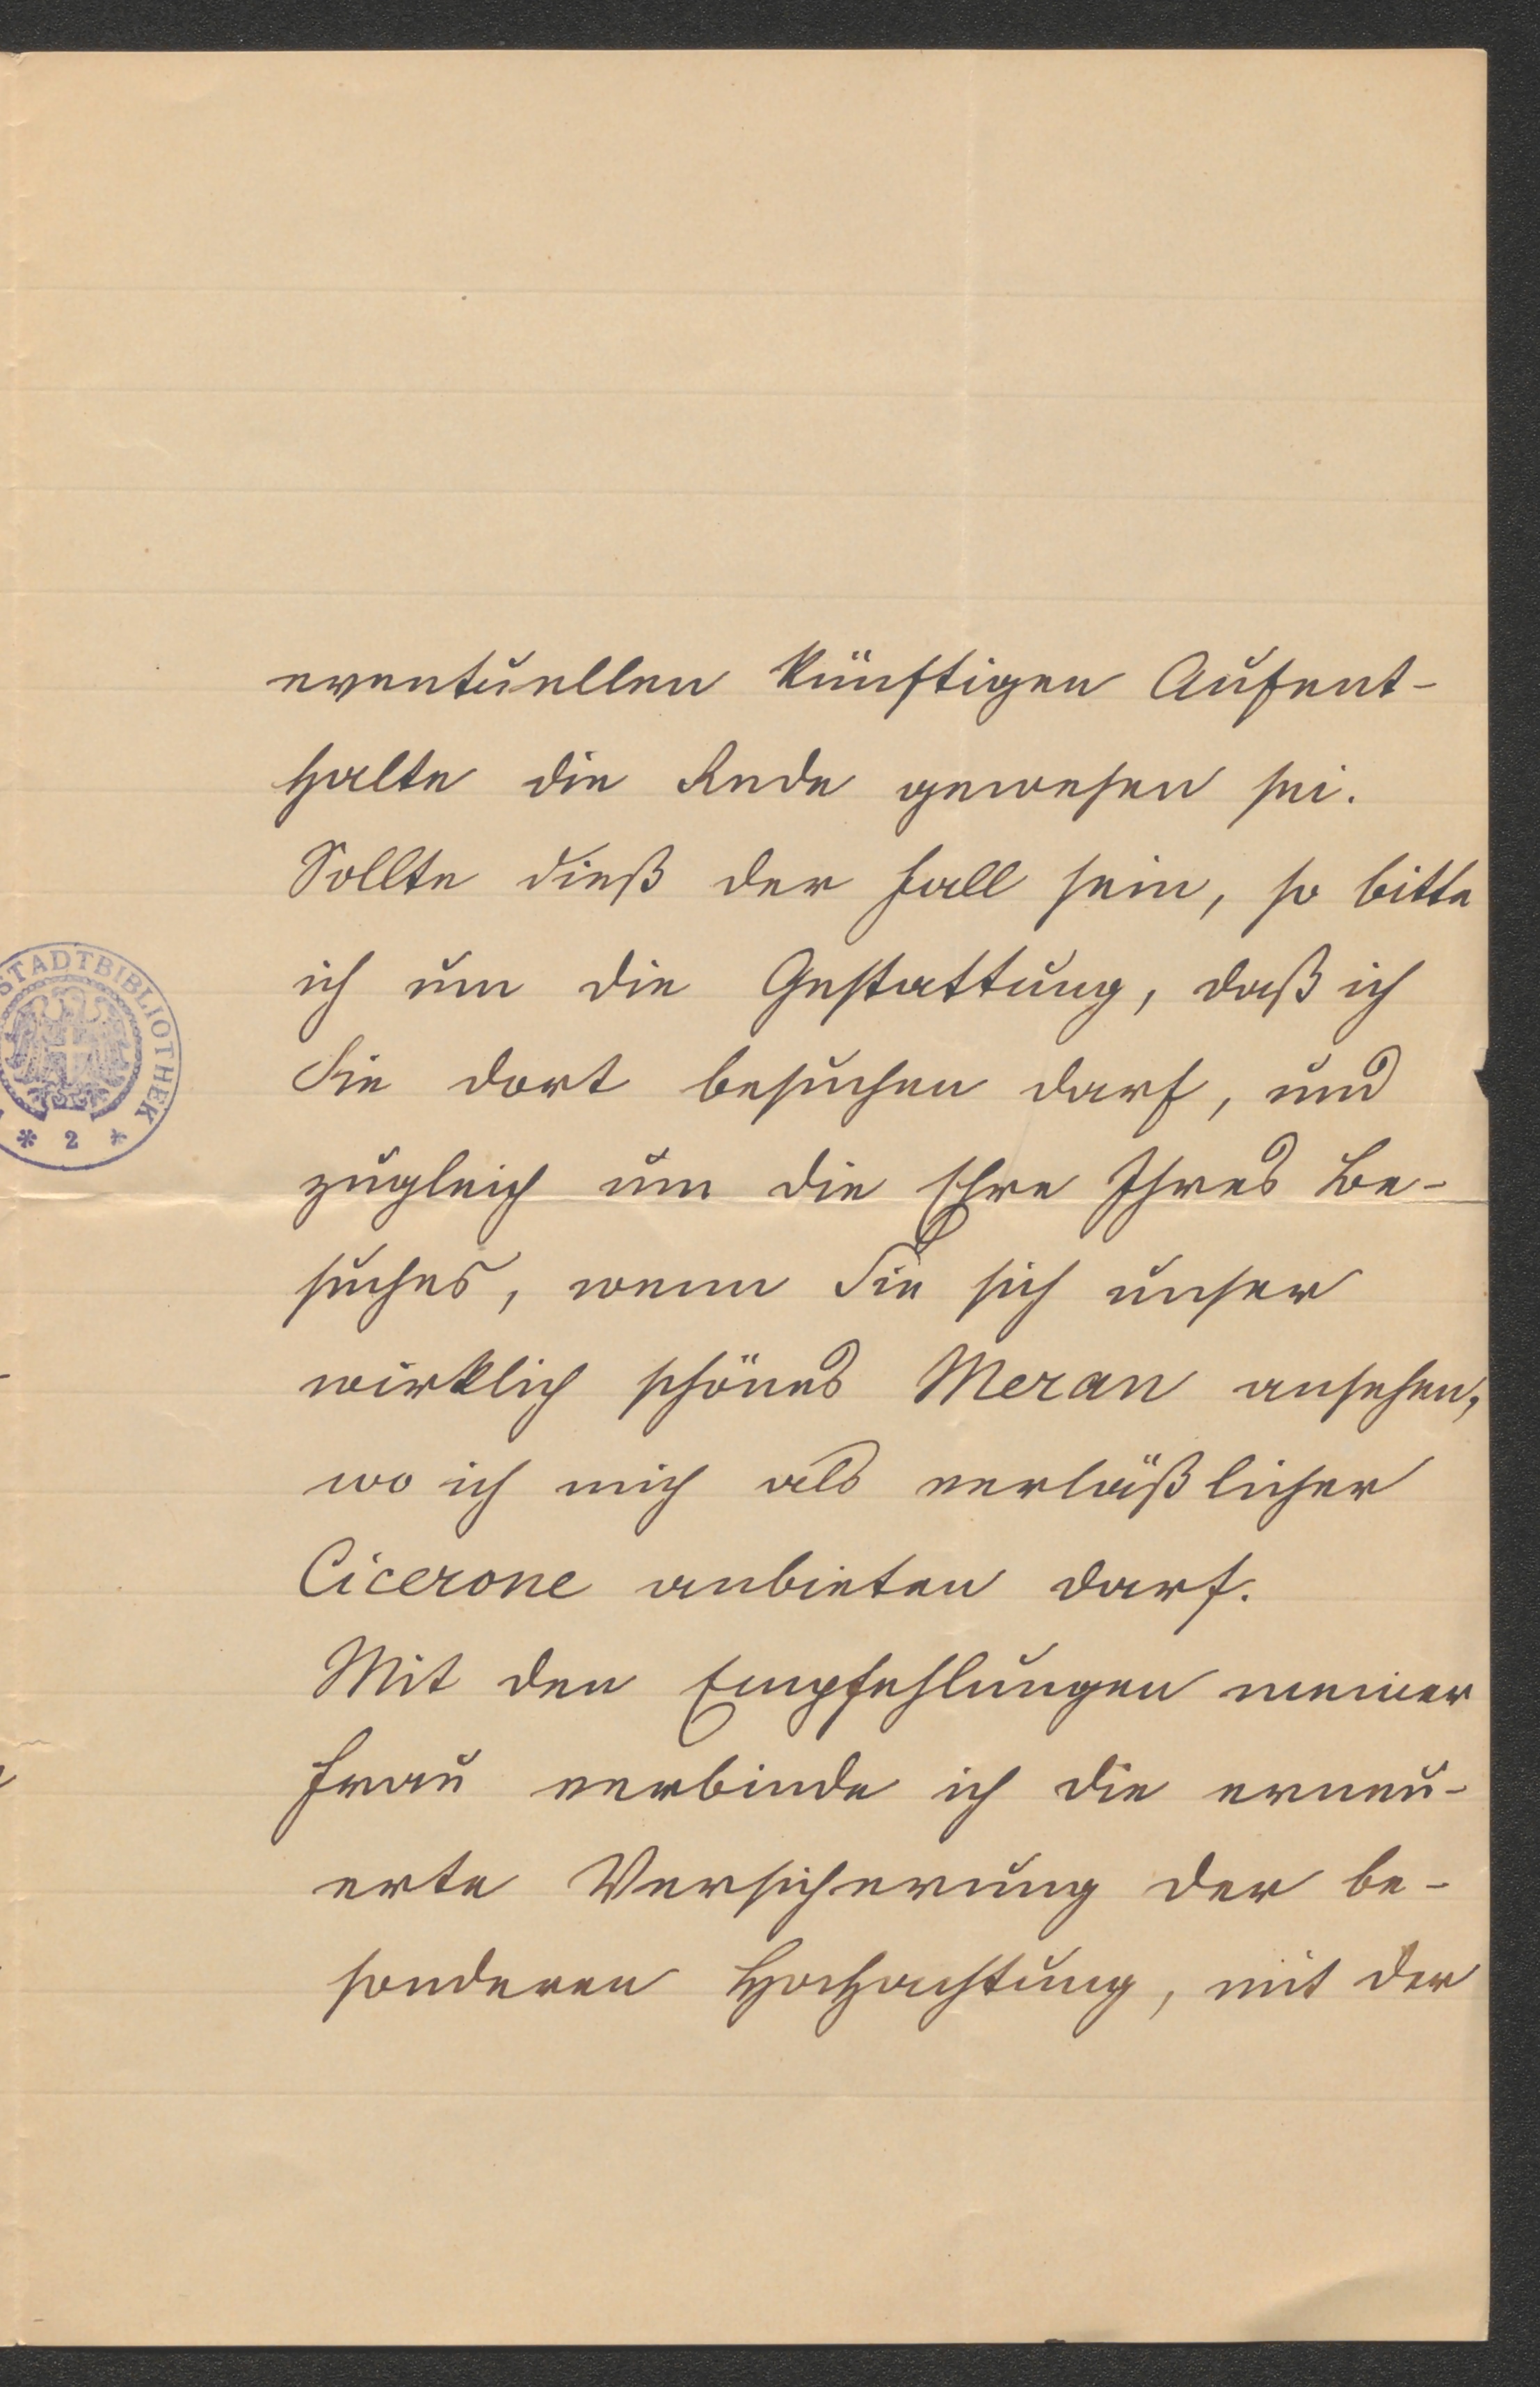 eventuellen künftigen Aufent-
halte die Rede gewesen sei.
Sollte dieß der Fall sein, so bitte
ich um die Gestattung, daß ich
Sie dort besuchen darf, und
zugleich um die Ehre Ihres Be-
suches, wenn Sie sich unser
wirklich schönes Meran ansehen,
wo ich mich als verläßlicher
Cicerone anbieten darf.
Mit den Empfehlungen meiner
Frau verbinde ich die erneu-
erte Versicherung der be-
sonderen Hochachtung, mit der
STADTBIBLIOTHEK
* 2 *